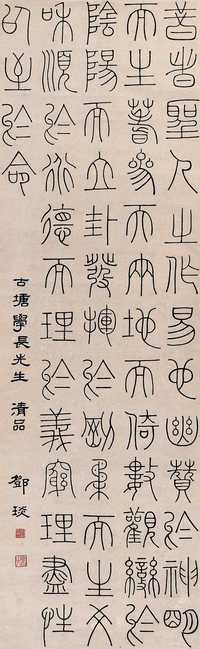 昔者聖人之作易也幽贊於神明
而生蓍參天兩地而倚數觀變於
陰陽而立卦發揮於剛柔而生爻
和順於道德而理於義窮理盡性
以至於命
古塘學長先生 清品 鄧琰